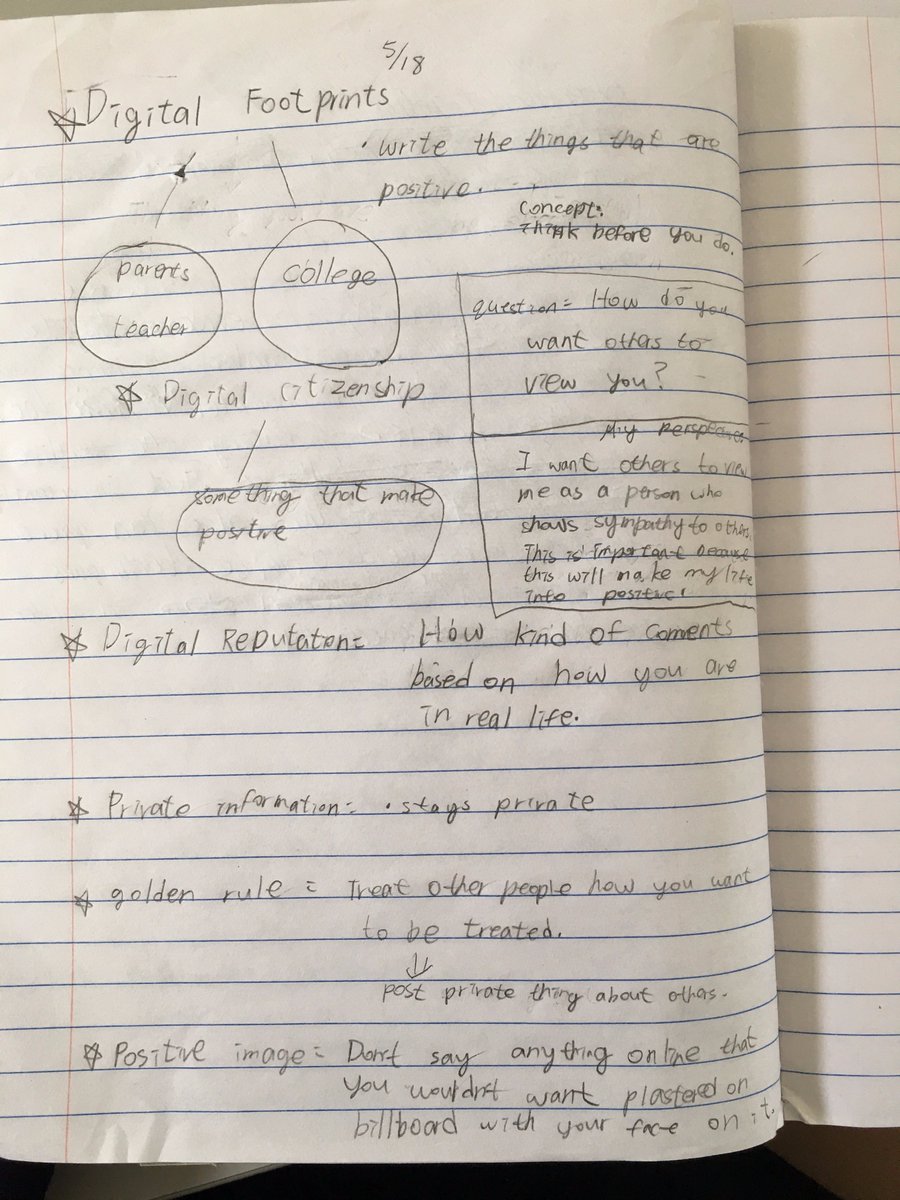 5/18
Digital Footprints
• write the things that are
positive.
concept:
think before you do.
parents
teacher
college
question = How do you
want others to
view you?
Digital citizenship
something that make
positive
My perspective
I want others to view
me as a person who
shows sympathy to others.
This is important because
this will make my life
into positive!
Digital Reputation = How kind of coments
based on how you are
in real life.
Private information = • stays private
golden rule = Treat other people how you want
to be treated.
post private thing about others.
Positive image = Don't say anything online that
you wouldn't want plastered on
billboard with your face on it.